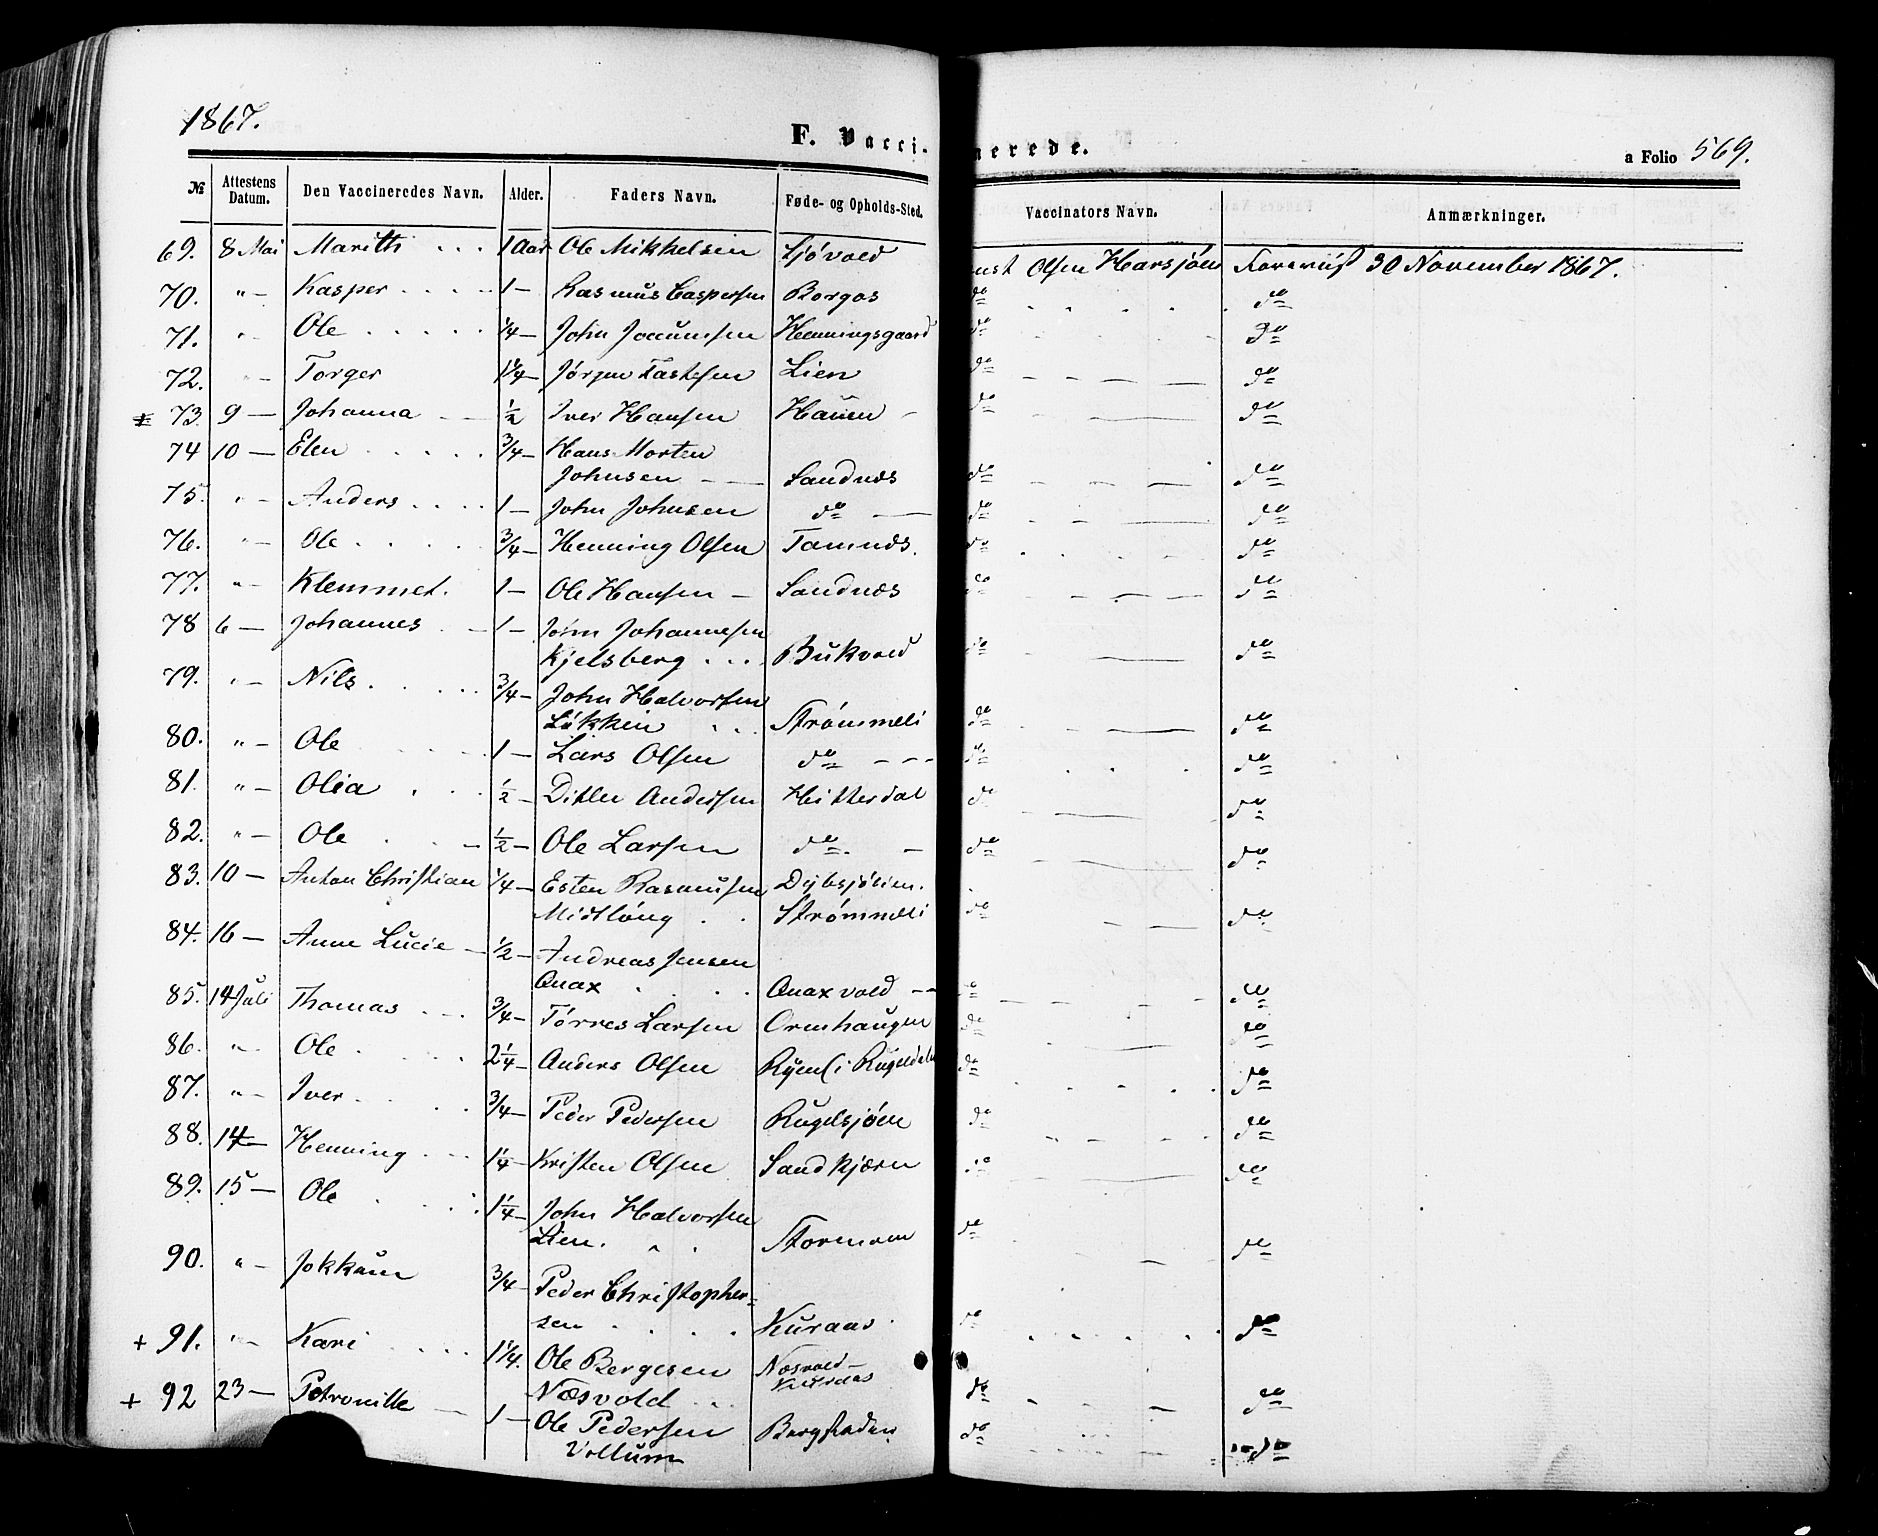 1867.
F. Vacci-
nerede.
a Folio 569.
№ Attestens Datum. Den Vaccineredes Navn. Alder. Faders Navn. Føde- og Opholds-Sted. Vaccinators Navn. Anmærkninger.
69. 8 Mai Marith 1 Aar Ole Mikkelsen Sjøvold Olsen Harsjøen Foreviist 30 November 1867.
70. " - Kasper 1 - Rasmus Caspersen Borgos do do
71. " - Ole 1/4 - John Joccumsen Henningsgaard do do
72. " - Torger 1 1/4 - Jørgen Tastesen Lien do do
73. 9 - Johanna 1/2 Iver Hansen Hauen do do
74 10 - Elen 3/4 - Hans Morten
Johnsen Sandnæs do do
75. " - Anders 1 - John Johnsen do do do
76. " - Ole 3/4 - Henning Olsen Tamnæs. do do
77. " - Klemmet. 1 - Ole Hansen - Sandnæs do do
78 6 - Johannes 1 - John Johannesen
Kjelsberg Bukvold do do
79. " - Nils 3/4 - John Halvorsen
Løkken Strømmeli do do
80. " - Ole 1 - Lars Olsen do do do
81. " - Olia 1/2 - Ditlev Andersen Hitterdal do do
82. " - Ole 1/2 - Ole Larsen do do do
83. 10 - Anton Christian 1/4 - Esten Rasmussen Dybsjølien.
Midtlöng Strømmeli do do
84. 16 - Anne Lucie - 1/2 - Andreas Jensen
Qvax Qvaxvold do do
85. 14 Juli Thomas 3/4 - Tørres Larsen Ormhaugen do do
86. " - Ole 2 1/4 - Anders Olsen i do do
87. " - Iver 3/4 - Peder Pedersen Rugelsjøen do do
88. 14 - Henning 1 1/4 - Kristen Olsen Sandkjærn do do
89. 15 - Ole 1 1/4 - John Halvorsen
Lien. Stormoen do do
90. " - Jokkum 3/4 - Peder Christopher-
sen Kuraas do do
+ 91. " - Kari 1 1/4. Ole Bergesen Næsvold -
Næsvold Kuraas do do
+ 92 23 - Petronille 1 - Ole Pedersen Bergstaden do do
Vollum